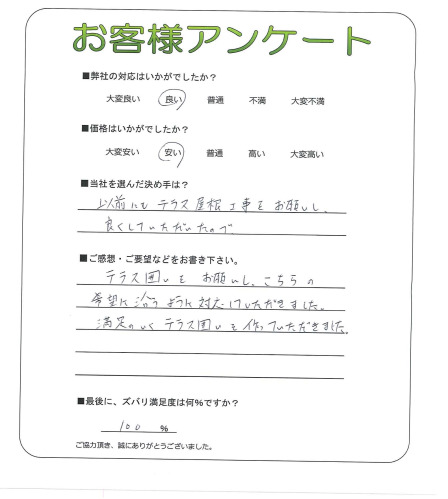 お客様アンケート
■弊社の対応はいかがでしたか？
大変良い 良い 普通 不満 大変不満
■価格はいかがでしたか？
大変安い 安い 普通 高い 大変高い
■当社を選んだ決め手は？
以前にもテラス屋根工事をお願いし、
良くしていただいたので
■ご感想・ご要望などをお書き下さい。
テラス囲いをお願いし、こちらの
希望に沿うように対応していただきました。
満足のいくテラス囲いを作っていただきました。
■最後に、ズバリ満足度は何％ですか？
100 ％
ご協力頂き、誠にありがとうございました。